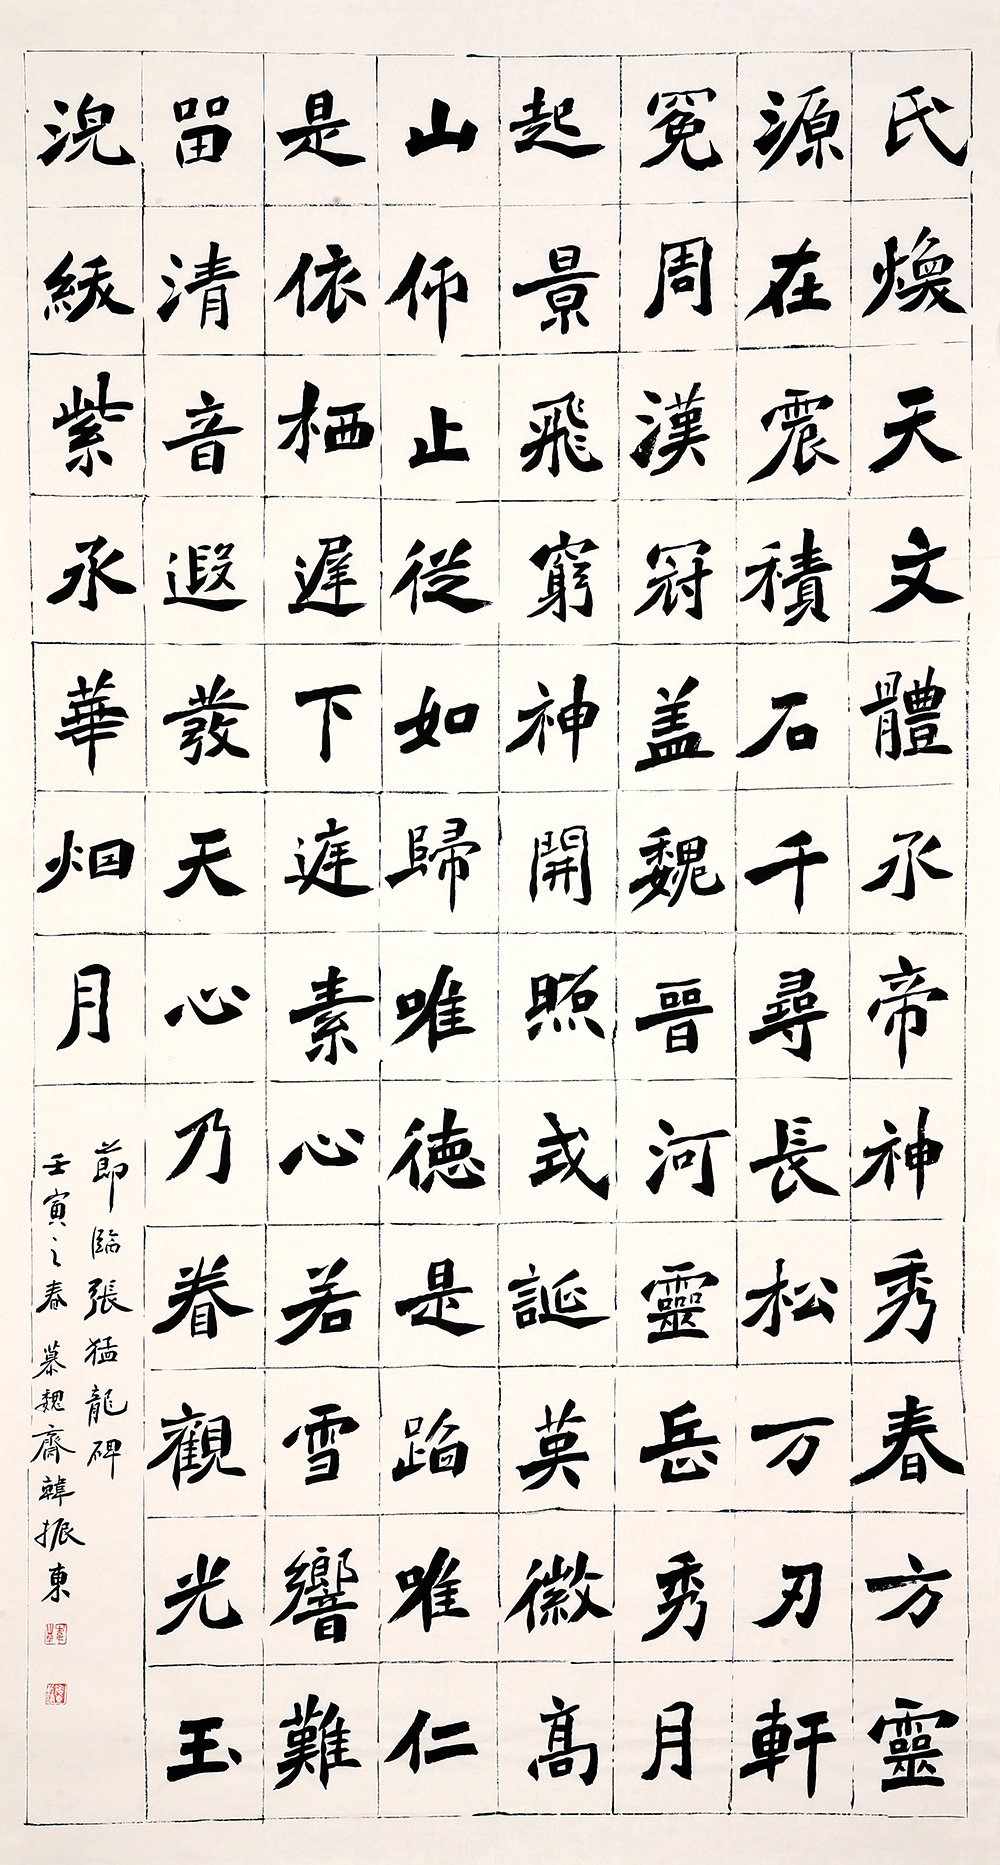 氏煥天文體承帝神秀春方靈
源在震積石千尋長松万刃軒
冕周漢冠盖魏晉河靈岳秀月
起景飛窮神開照式誕英徽高
山仰止從如歸唯德是蹈唯仁
是依栖遲下遅素心若雪響難
留清音遐發天心乃眷觀光玉
渷綬紫承華烟月
節臨張猛龍碑
壬寅之春慕魏齋韓振東